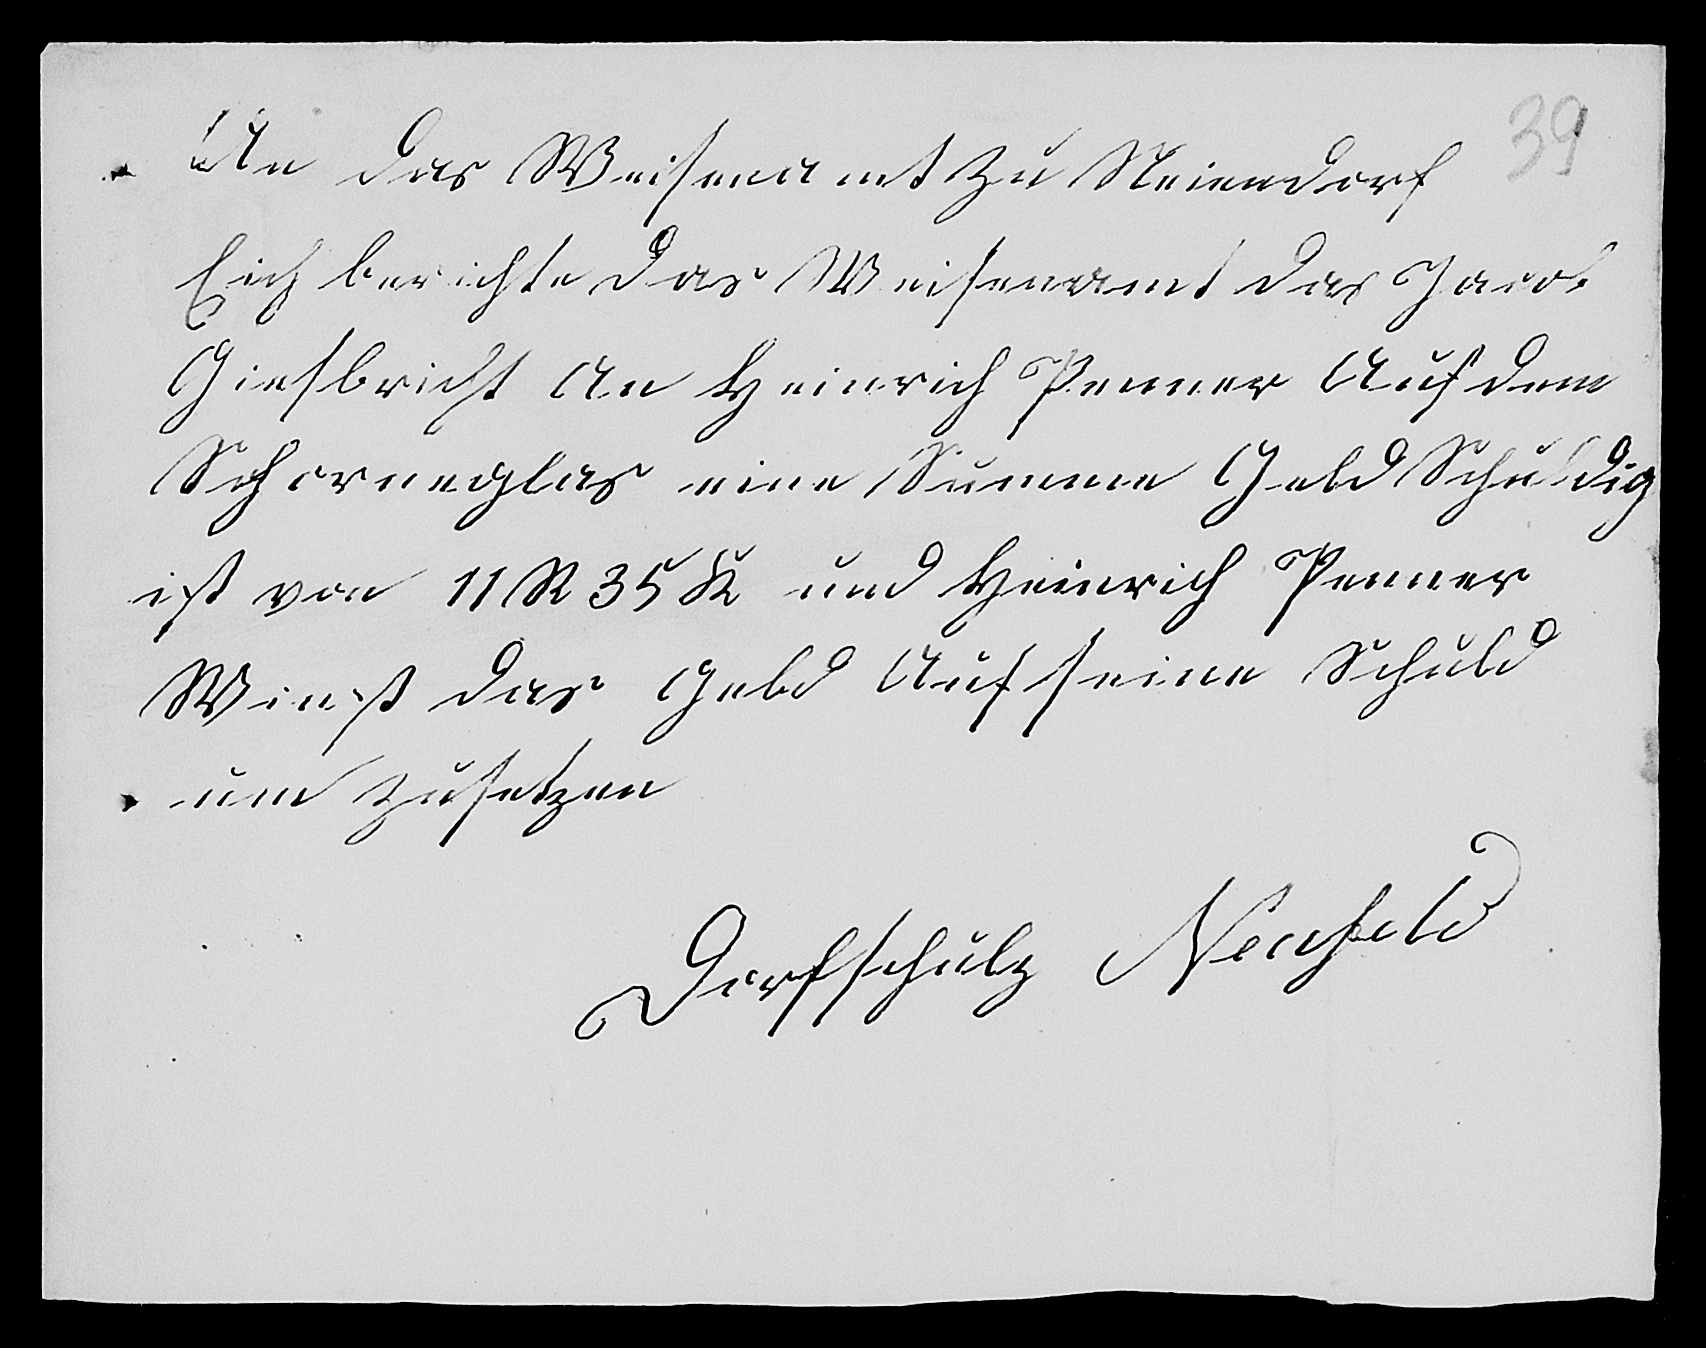 39
An das Weisenamt zu Neiendorf
Eich berichte das Weisenamt das Jacob
Giesbricht An Heinrich Penner Auf dem
Schorneglas eine Summe Geld Schuldig
ist von 11 R 35 K und Heinrich Penner
Winst das Geld Auf seine Schuld
um zusetzen
Dorfschulz Neufeld